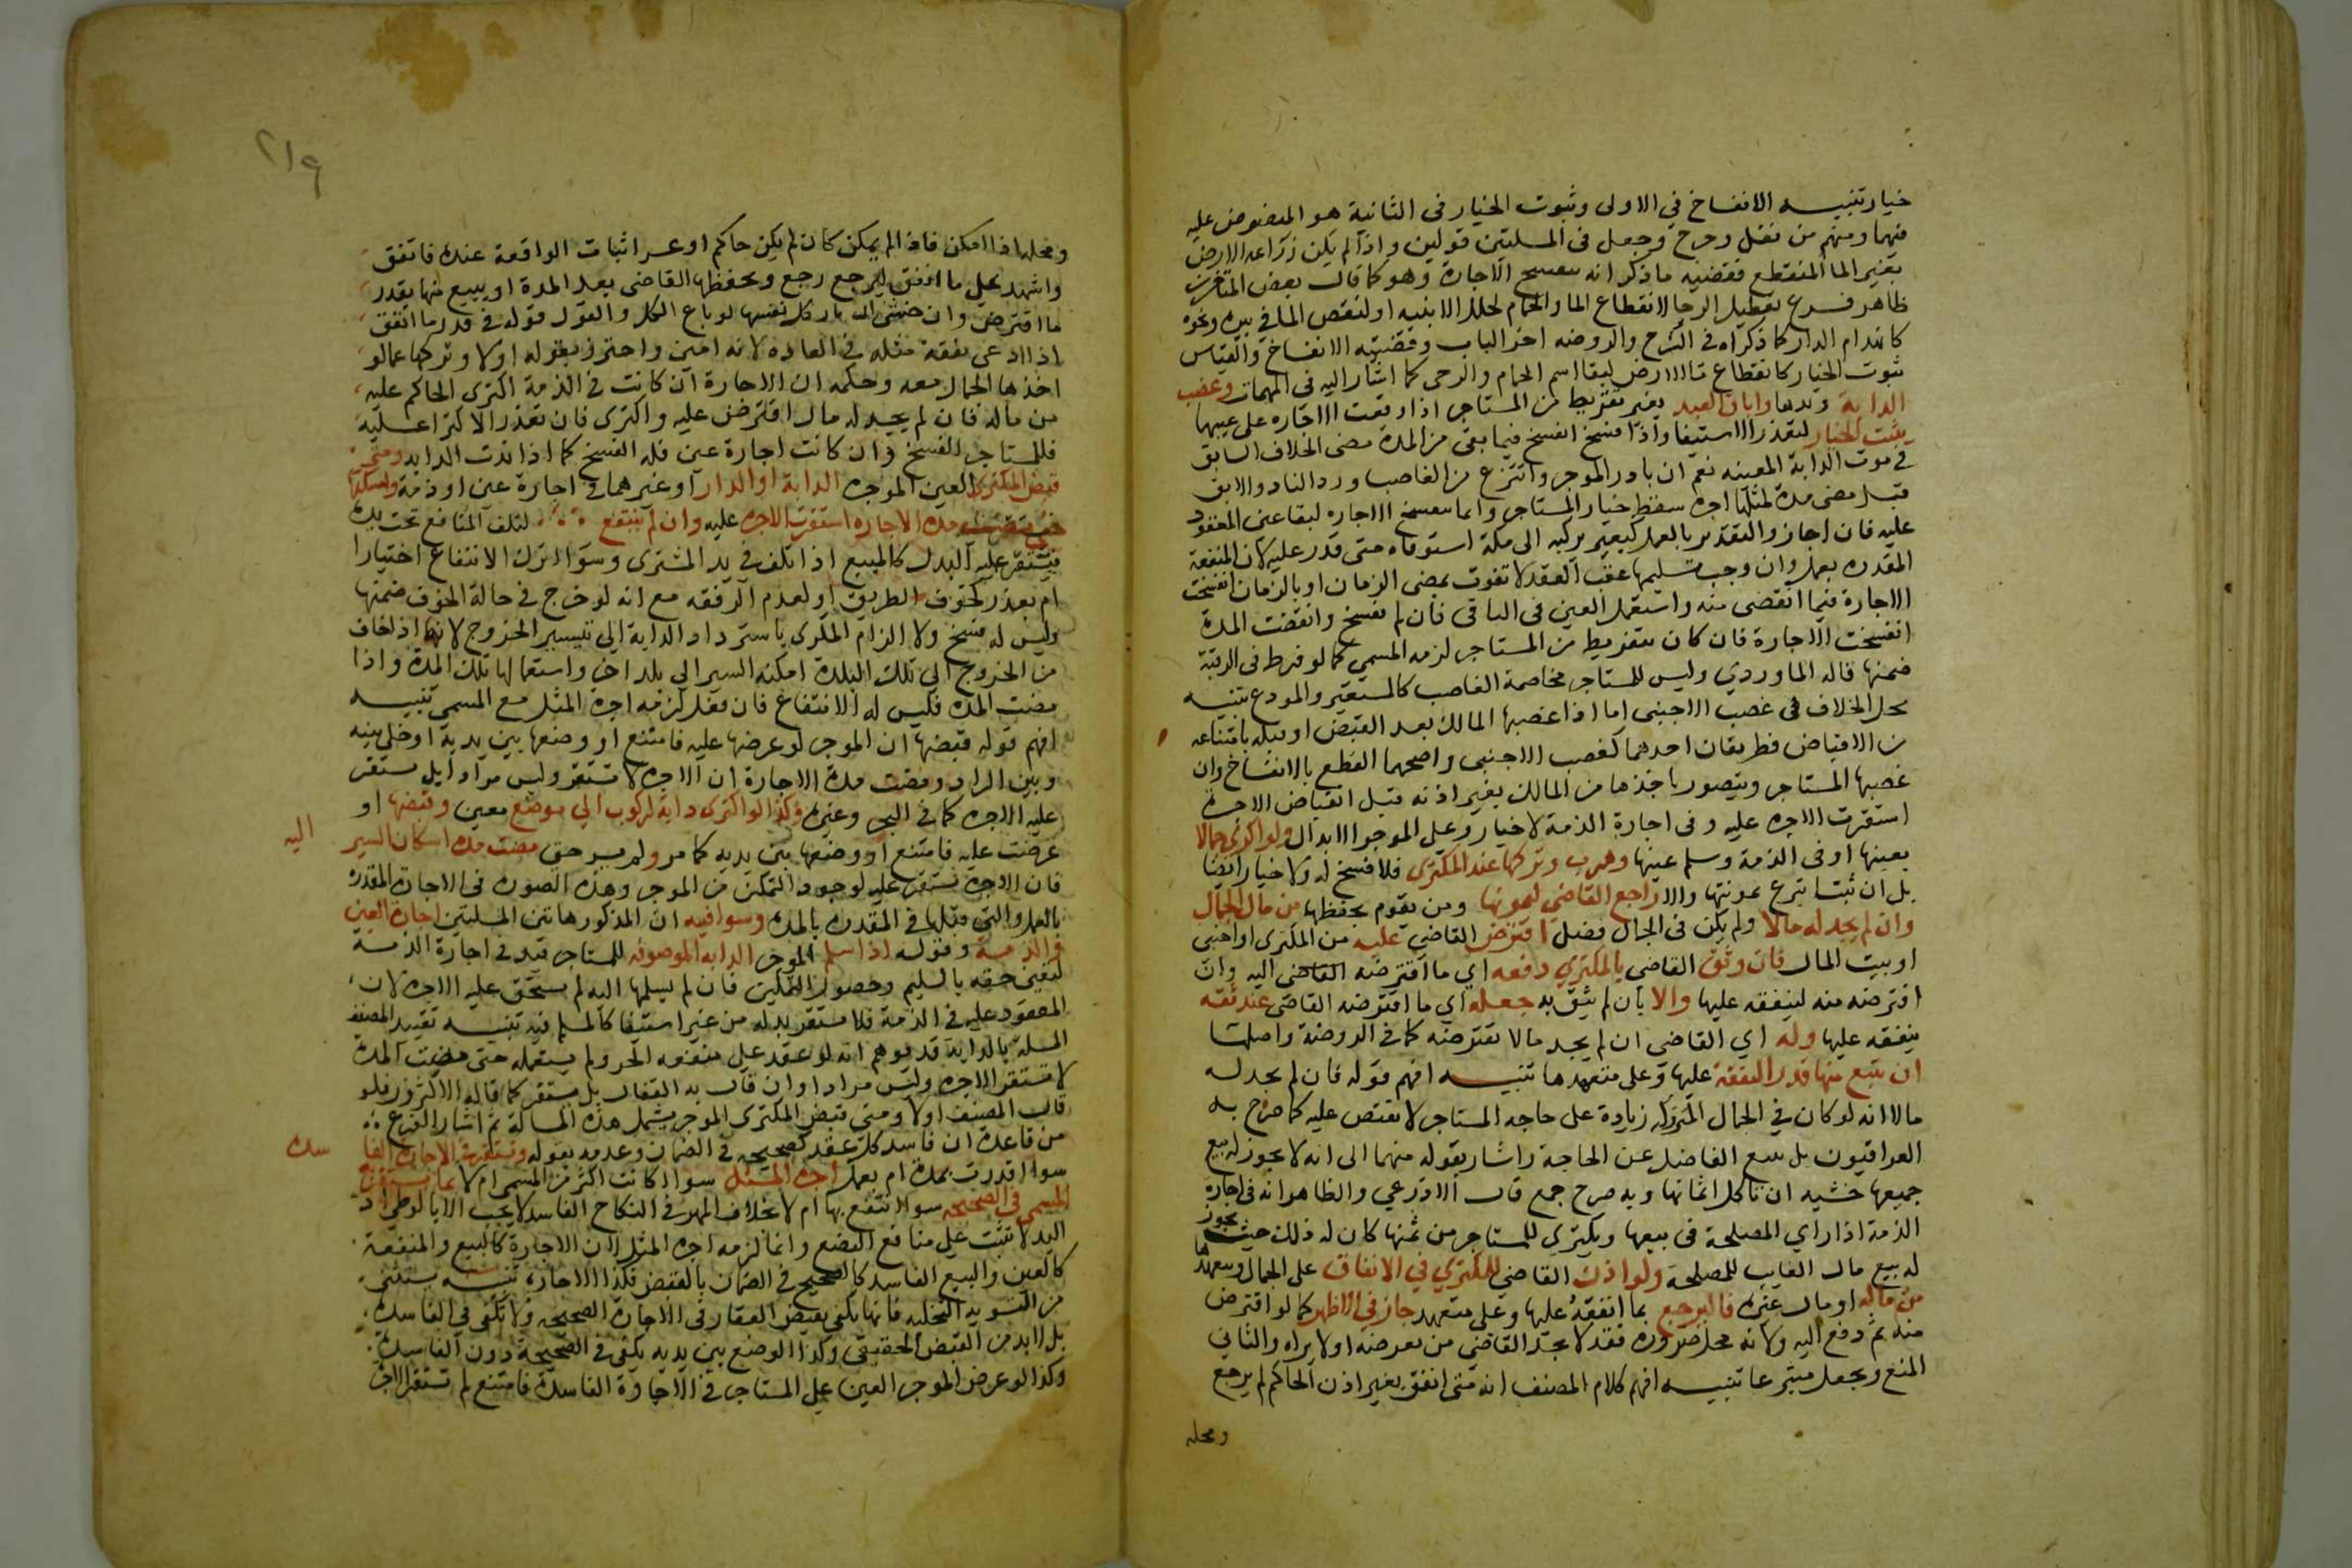 خيار تنبيه الانفساخ في الاولى وثبوت الخيار في الثانية هو المنصوص عليه
فيهما ومنهم من نقل وخرج وجعل في المسلتين قولين واذا لم يكن زراعه الارض
بغير الما المنقطع فقضيه ما ذكر انه تنفسخ الاجارة وهو كما قال بعض المتاخرين
ظاهر فرع تعطيل الرحا لانقطاع الما والحمام لخلل الابنيه او لنقص الما في بيره ونحوه
كانهدام الدار كما ذكراه في الشرح والروضه اخر الباب وقضيته الانفساخ والقياس
ثبوت الخيار كانقطاع ما الارض لبقا اسم الحمام والرحى كما اشار اليه في المهمات وغصب
الدابة وندها واباق العبد بغير تفريط من المستاجر اذا وقعت الاجاره على عينها
يثبت الخيار لتعذر الاستيفا واذا فسخ انفسخ فيما بقى من المدة وفيما مضى الخلاف السابق
في موت الدابة المعينه نعم ان بادر الموجر وانتزع من الغاصب ورد الناد والابق
قبل مضى مدة لمثلها اجرة سقط خيار المستاجر وانما لم تنفسخ الاجاره لبقا عين المعقود
عليه فان اجاز والتقدير بالعمل كبعير يركبه الى مكة استوفاه متى قدر عليه لان المنفعة
المقدره بعمل وان وجب تسليمها عقب العقد لا تفوت بمضى الزمان او بالزمان انفسخت
الاجارة فيما انقضى منه واستعمل العين في الباقى فان لم يفسخ وانقضت المدة
انفسخت الاجارة فان كان بتفريط من المستاجر لزمه المسمى كما لو فرط في الرقبة
ضمنها قاله الماوردي وليس للمستاجر مخاصمة الغاصب كالمستعير والمودع تنبيه
محل الخلاف في غصب الاجنبى اما اذا غصبها المالك بعد القبض او قبله بامتناعه
من الاقباض فطريقان احدهما كغصب الاجنبى واصحهما القطع بالانفساخ وان
غصبها المستاجر ويتصور باخذها من المالك بغير اذنه قبل اقباض الاجرة
استقرت الاجره عليه وفى اجارة الذمة لا خيار وعلى الموجر الابدال ولو اكرى جمالا
بعينها او في الذمة وسلم عينها وهرب وتركها عند المكترى فلا فسخ له ولا خيار ايضا
بل ان شا تبرع بمونتها والا راجع القاضى ليمونها ومن يقوم بحفظها من مال الجمال
وان لم يجد له مالا ولم يكن في الجمال فضل اقترض القاضي عليه من المكترى او اجنبى
او بيت المال فان وثق القاضى بالمكتري دفعه اي ما اقترضه القاضى اليه وان
اقترضه منه لينفقه عليها والا بان لم يثق به جعله اي ما اقترضه القاضى عند ثقه
ينفقه عليها وله اي القاضى ان لم يجد مالا يقترضه كما في الروضة واصلها
ان يبيع منها قدر النفقة عليها وعلى متعهدها تنبيه افهم قوله فان لم يجد له
مالا انه لو كان في الجمال المتروكه زيادة على حاجه المستاجر لا يقترض عليه كما صرح به
العراقيون بل يبيع الفاضل عن الحاجة واشار بقوله منها الى انه لا يجوز له بيع
جميعها خشيه ان تاكل اثمانها وبه صرح جمع قال الاذرعي والظاهر انه في اجارة
الذمة اذا راي المصلحة في بيعها ويكترى للمستاجر من ثمنها كان له ذلك حيث يجوز
له بيع مال الغايب للمصلحة ولو اذن القاضي للمكتري في الانفاق على الجمال ومتعهدها
من ماله او مال غيره فاليرجع بما انفقه عليها وعلى متعهد جاز في الاظهر كما لو اقترض
منه ثم دفع اليه ولانه محل ضروره فقد لا يجد القاضي من يقرضه او لا يراه والثاني
المنع ويجعل متبرعا تنبيه افهم كلام المصنف انه متى انفق بغير اذن الحاكم لم يرجع
ومحله
٢١٩
ومحله اذا امكن فاذا لم يمكن كان لم يكن حاكم او عسر اثبات الواقعة عنده فانفق
واشهد على ما انفق ليرجع رجع ويحفظها القاضى بعد المدة او يبيع منها بقدر
ما اقترض وان خشى ان تاكل نفسها لو باع الكل والقول قوله في قدر ما انفق
اذا ادعى نفقة مثله في العاده لانه امين واحترز بقوله اولا وتركها عما لو
اخذها الجمال معه وحكمه ان الاجارة ان كانت في الذمة اكترى الحاكم عليه
من ماله فان لم يجد له مال اقترض عليه واكترى فان تعذر الاكترا عليه
فللمستاجر الفسخ وان كانت اجارة عين فله الفسخ كما اذا ندت الدابه ومتى
قبض المكترى العين الموجره الدابة او الدار او غيرهما في اجارة عين او ذمة وامسكها
حتى مضت مدة الاجاره استقرت الاجره عليه وان لم ينتفع لتلف المنافع تحت يده
فيستقر عليه البدل كالمبيع اذا تلف في يد المشترى وسوا اترك الانتفاع اختيارا
ام بعذر كخوف الطريق او لعدم الرفقه مع انه لو خرج في حالة الخوف ضمنها
وليس له فسخ ولا الزام المكرى باسترداد الدابة الى تيسير الخروج لانه اذا خاف
من الخروج الى تلك البلدة امكنه السير الى بلد اخر واستعمالها تلك المدة واذا
مضت المدة فليس له الانتفاع فان فعل لزمه اجرة المثل مع المسمى تنبيه
افهم قوله قبضها ان الموجر لو عرضها عليه فامتنع او وضعها بين يديه او خلى بينه
وبين الدار ومضت مدة الاجارة ان الاجرة لا تستقر وليس مرادا بل تستقر
عليه الاجره كما في البحر وغيره وكذا لو اكترى دابة لركوب الى موضع معين وقبضها او
عرضت عليه فامتنع او وضعها بين يديه كما مر ولم يسر حتى مضت مدة امكان السير اليه
فان الاجرة تستقر عليه لوجود التمكن من الموجر وهذه الصورة في الاجارة المقدرة
بالعمل والتى قبلها في المقدرة بالمدة وسوا فيه ان المذكور هاتين المسلتين اجارة العين
والذمة وقوله اذا سلم الموجر الدابه الموصوفه للمستاجر قيد في اجارة الذمة
لتعين حقه بالتسليم وحصول التمكين فان لم يسلمها اليه لم يستحق عليه الاجرة لان
المعقود عليه في الذمة فلا يستقر بدله من غير استيفا كالمسلم فيه تنبيه تقييد المصنف
المسلة بالدابة قد يوهم انه لو عقد على منفعة الحر ولم يستعمله حتى مضت المدة
لا تستقر الاجره وليس مرادا وان قال به القفال بل تستقر كما قاله الاكثرون فلو
قال المصنف اولا ومتى قبض المكترى الموجر يشمل هذه المسالة ثم اشار الفرع
من قاعدة ان فاسد كل عقد كصحيحه في الضمان وعدمه بقوله وتستقر في الاجارة الفاسدة
سوا اقدرت بمدة ام بعمل اجرة المثل سوا اكانت اكثر من المسمى ام لا بما يستقر به
المسمى في الصحيحه سوا انتفع بها ام لا بخلاف المهر في النكاح الفاسد لا يجب الا بالوطي اذ
اليد لا تثبت على منافع البضع وانما لزمه اجرة المثل لان الاجارة كالبيع والمنفعة
كالعين والبيع الفاسد كالصحيح في الضمان بالقبض فكذا الاجارة تنبيه يستثنى
من التسويه التخليه فانها تكفى بقبض العقار في الاجارة الصحيحه ولا تكفى في الفاسدة
بل لا بد من القبض الحقيقى وكذا الوضع بين يديه يكفى في الصحيحة دون الفاسدة
وكذا لو عرض الموجر العين على المستاجر في الاجارة الفاسدة فامتنع لم تستقر الاجرة